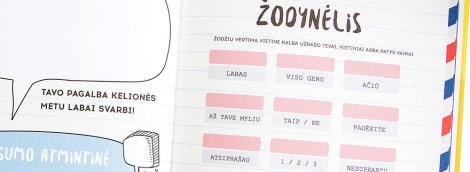 TAVO PAGALBA KELIONĖS
METU LABAI SVARBI!
SUMO ATMINTINĖ
ŽODYNĖLIS
ŽODŽIŲ VERTIMĄ VIETINE KALBA UŽRAŠO TĖVAI, VIETINIAI ARBA PATYS VAIKAI
LABAS
VISO GERO
AČIŪ
AŠ TAVE MYLIU
TAIP / NE
PADĖKITE
ATSIPRAŠAU
1 / 2 / 3
NESUPRANTU